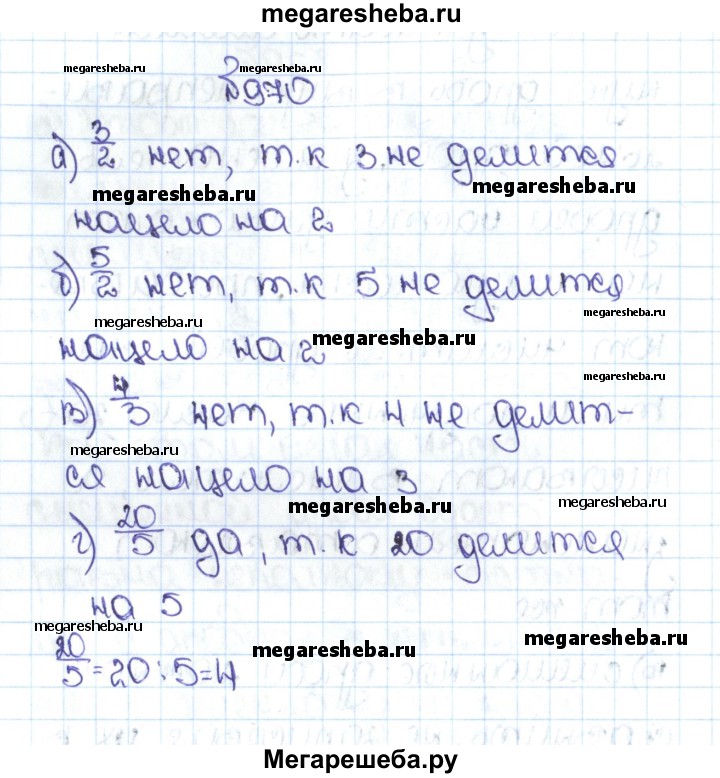 megaresheba.ru
megaresheba.ru megaresheba.ru
№970
а) 3/2 нет, т.к 3 не делится
megaresheba.ru megaresheba.ru
нацело на 2
б) 5/2 нет, т.к 5 не делится
megaresheba.ru megaresheba.ru
нацело на 2
megaresheba.ru
megaresheba.ru
в) 4/3 нет, т.к 4 не делит-
megaresheba.ru
ся нацело на 3
megaresheba.ru megaresheba.ru
г) 20/5 да, т.к 20 делится
на 5
megaresheba.ru megaresheba.ru
megaresheba.ru
20/5=20:5=4
Мегарешеба.ру